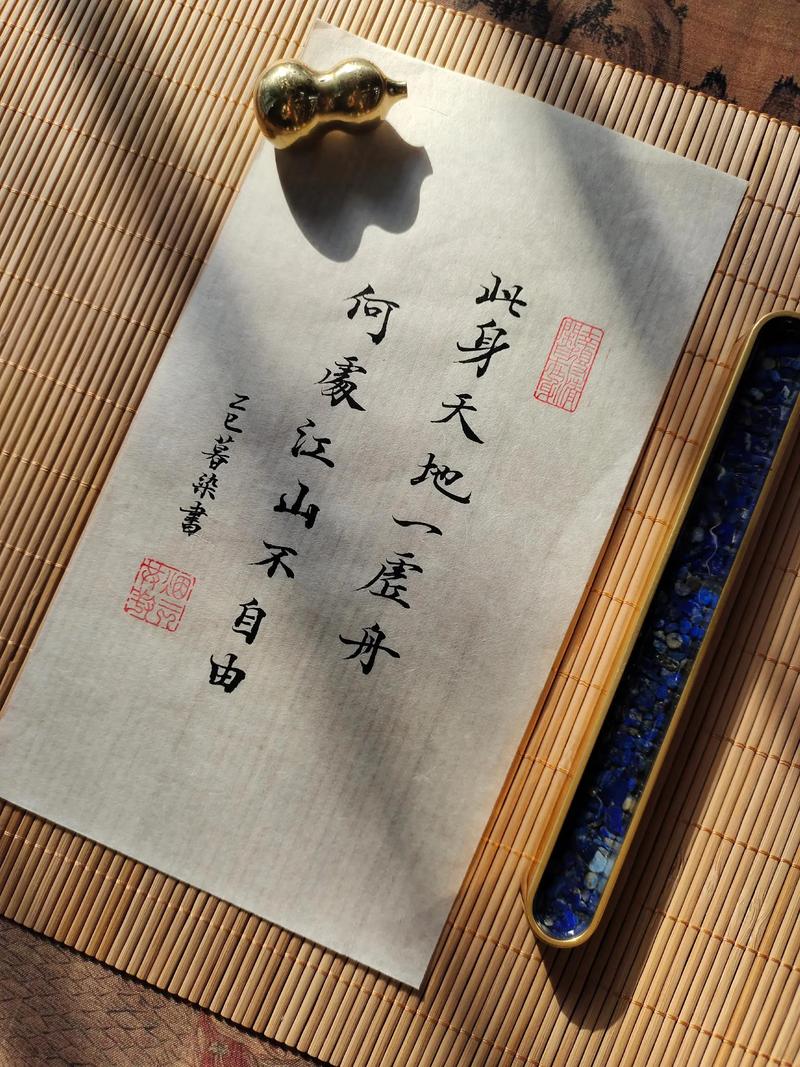 此身天地一虚舟
何處江山不自由
乙巳暮染書